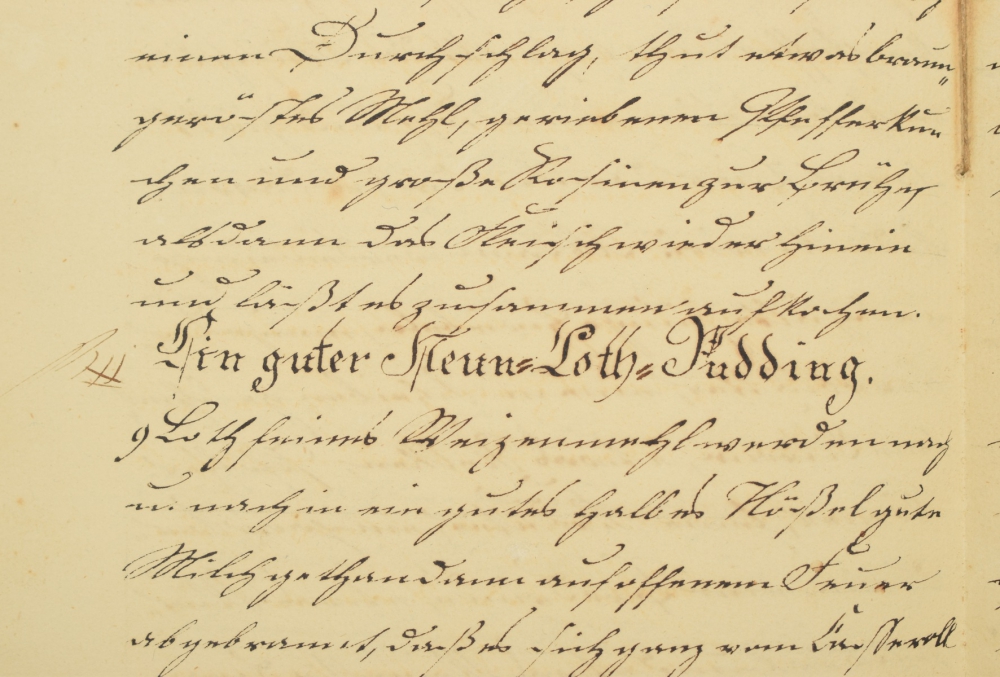 einen Durchschlag, thut etwas braun„
geröstes Mehl, geriebenen Pfefferku„
chen und große Rosinen zur Brühe,
alsdann das Fleisch wieder hinein
und läßt es zusammen aufkochen.
Ein guter Neun-Loth-Pudding.
9 Loth feines Weizenmehl werden nach
u. nach in ein gutes halbes Nößel gute
Milch gethan dann auf offenem Feuer
abgebrannt, daß es sich ganz vom Casseroll